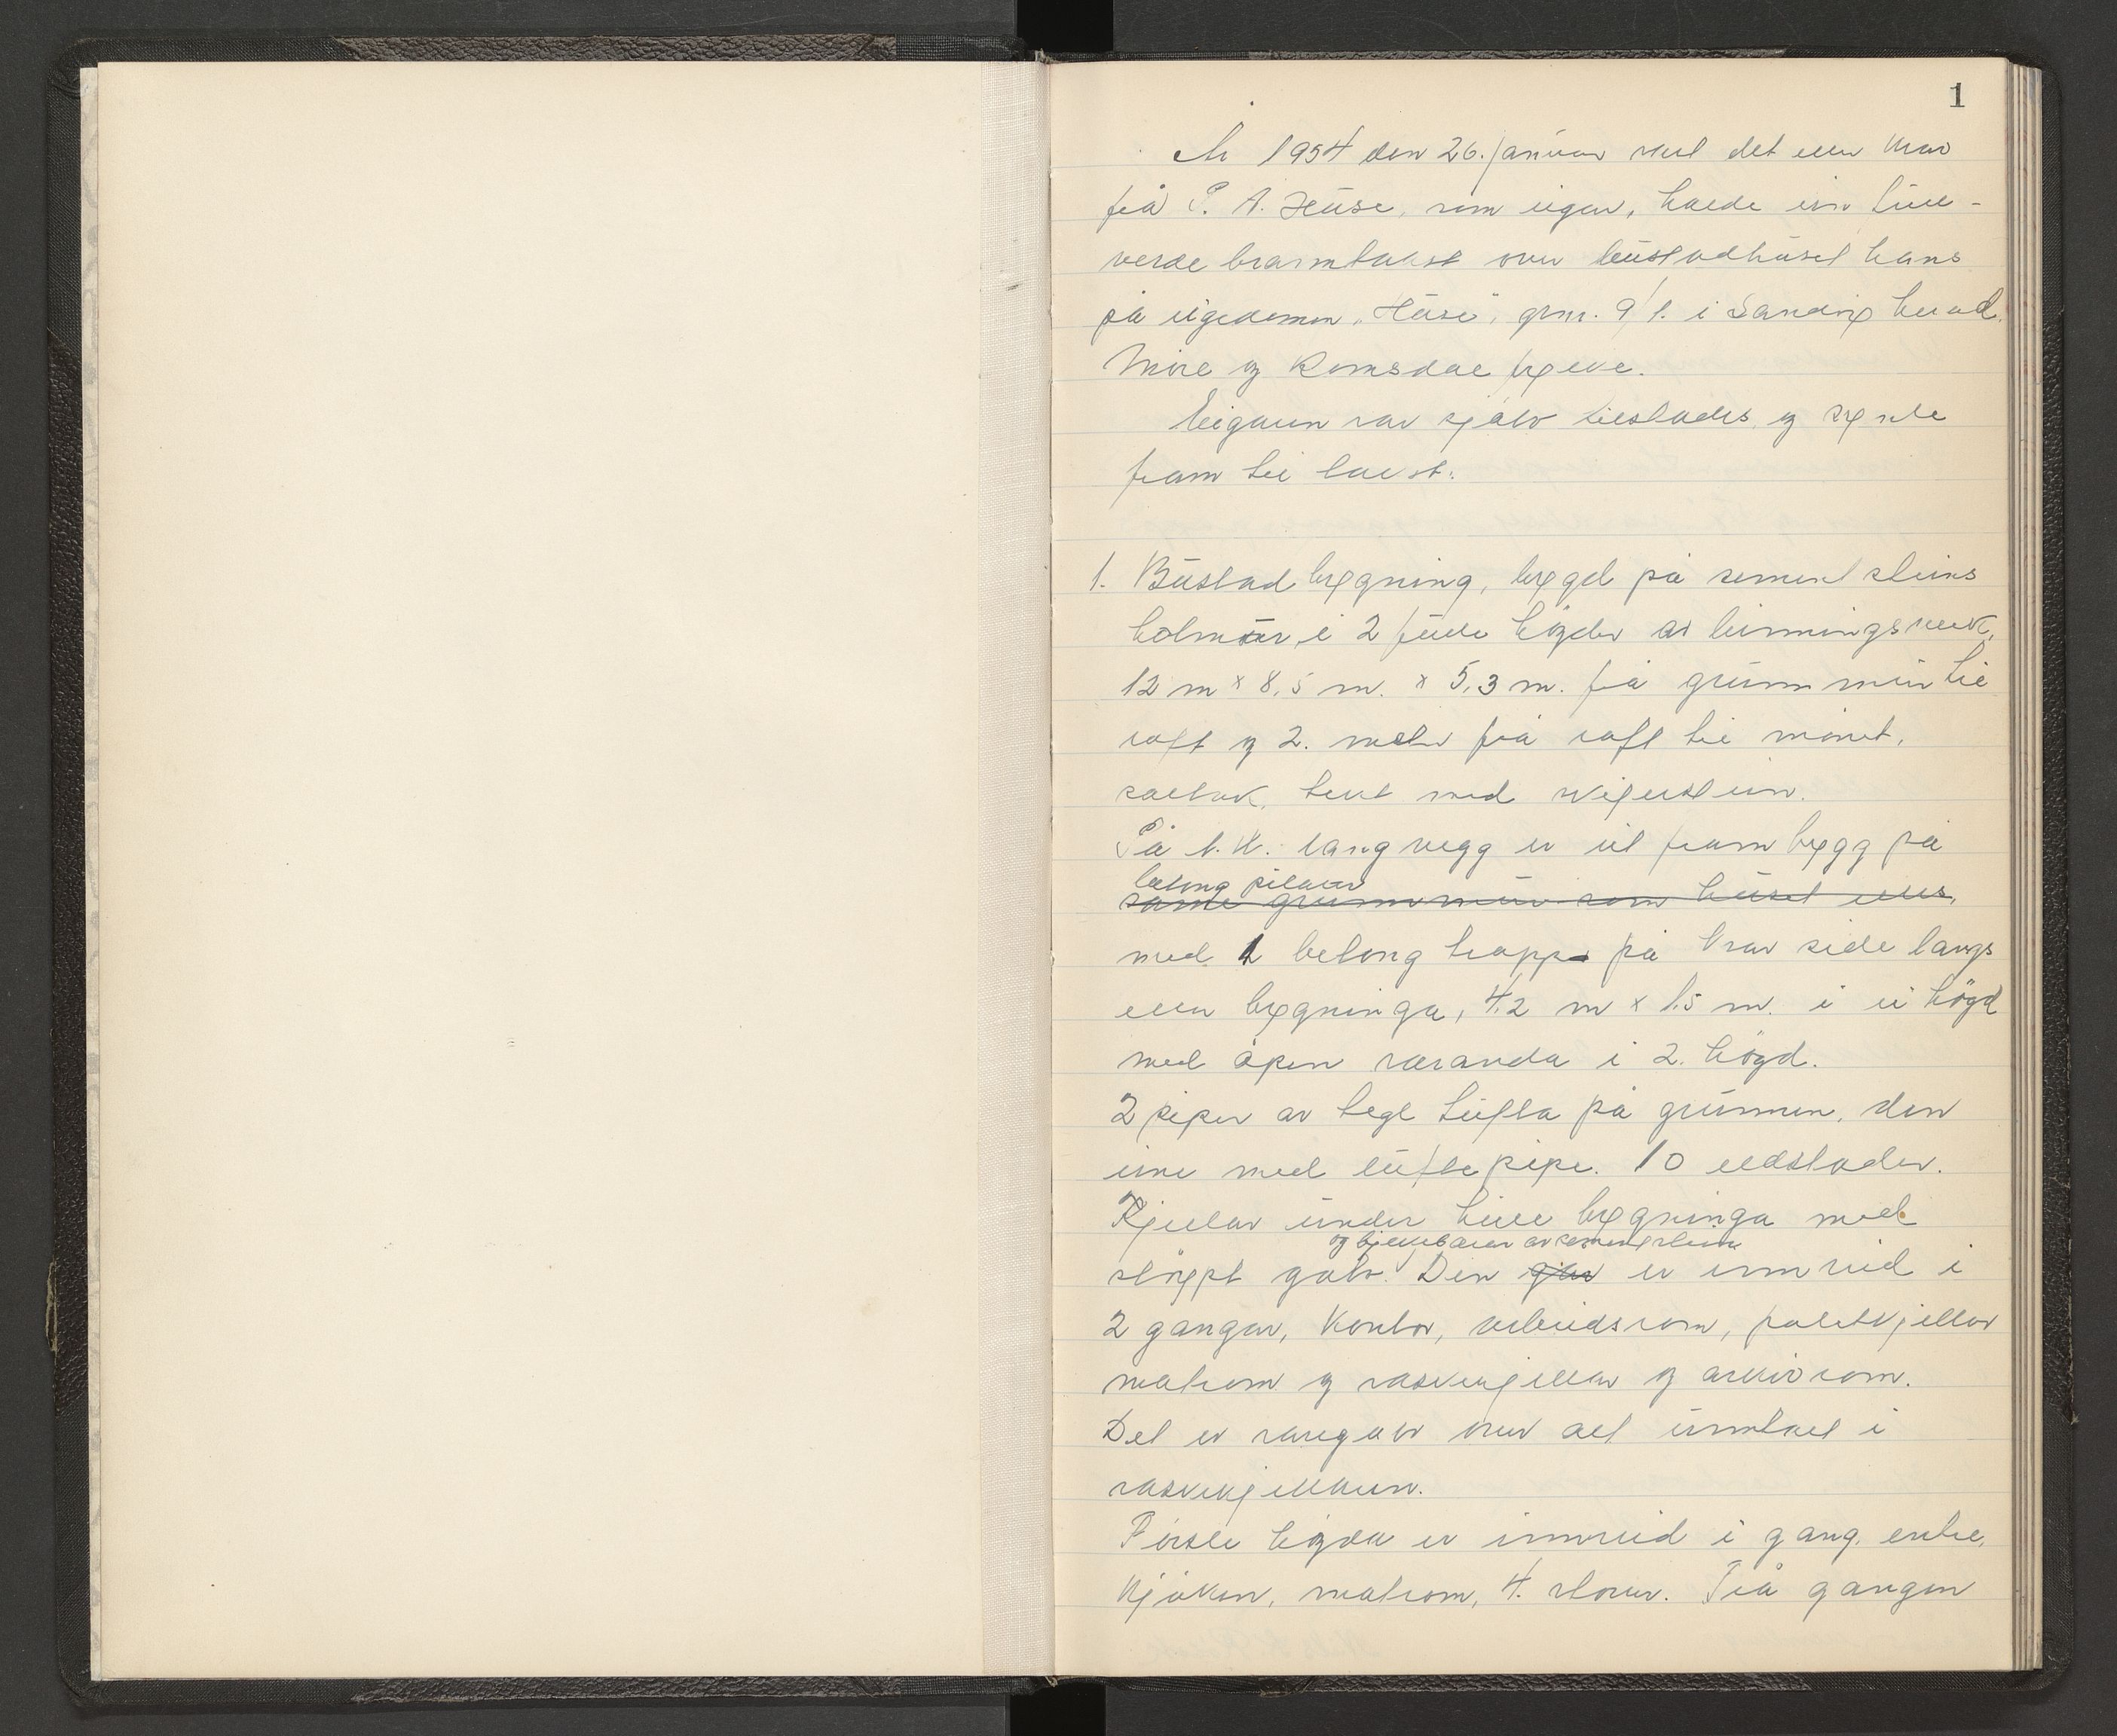 1
År 1954 den 26. januar vart det etter krav
frå P. A. Huse, som eigar, halde ein full-
verde branntakst over bustadhuset hans
på eigedomen "Huse", gnr. 9/1. i Sandøy herad
Møre og Romsdal fylke.
Eigaren var sjølv tilstades og synte
fram til takst:
1. Bustadbygning, bygd på sementsteins
holmur, i 2 fulle høgder av bindingsverk,
12 m x 8,5 m. x 5,3 m. frå grunnmur til
raft og 2. meter frå raft til mønet,
saltak, tekt med skiferstein.
På N.V. langvegg er eit frambygg på
betong pilarar
same grunnmur som huset elles,
med 1 betong trapp på kvar side langs
etter bygninga, 4,2 m x 1,5 m. i ei høgd
med åpen veranda i 2. høgd.
2 piper av tegl tufta på grunnen, den
eine med luftepipe. 10 eldstader.
Kjellar under heile bygninga med
og bjelkelag av sementstein
støypt golv. Den er innreid i
2 gangar, kontor, arbeidsrom, potetkjellar
matrom og vaskekjellar og arkivrom.
Det er tregolv over alt unntatt i
vaskekjellaren.
Første høgda er innreid i gang, entre,
kjøken, matrom, 4. stover. Frå gangen